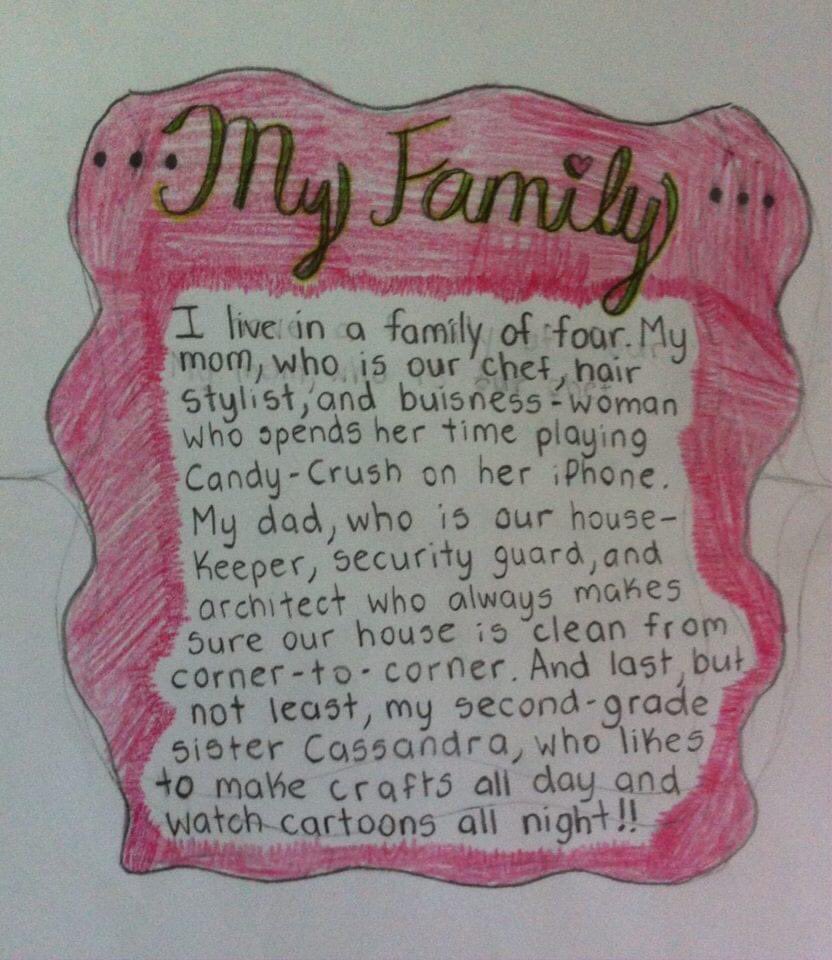 ...My Family...
I live in a family of four. My
mom, who is our chef, hair
stylist, and buisness-woman
who spends her time playing
Candy-Crush on her iPhone.
My dad, who is our house-
keeper, security guard, and
architect who always makes
sure our house is clean from
corner-to-corner. And last, but
not least, my second-grade
sister Cassandra, who likes
to make crafts all day and
watch cartoons all night!!